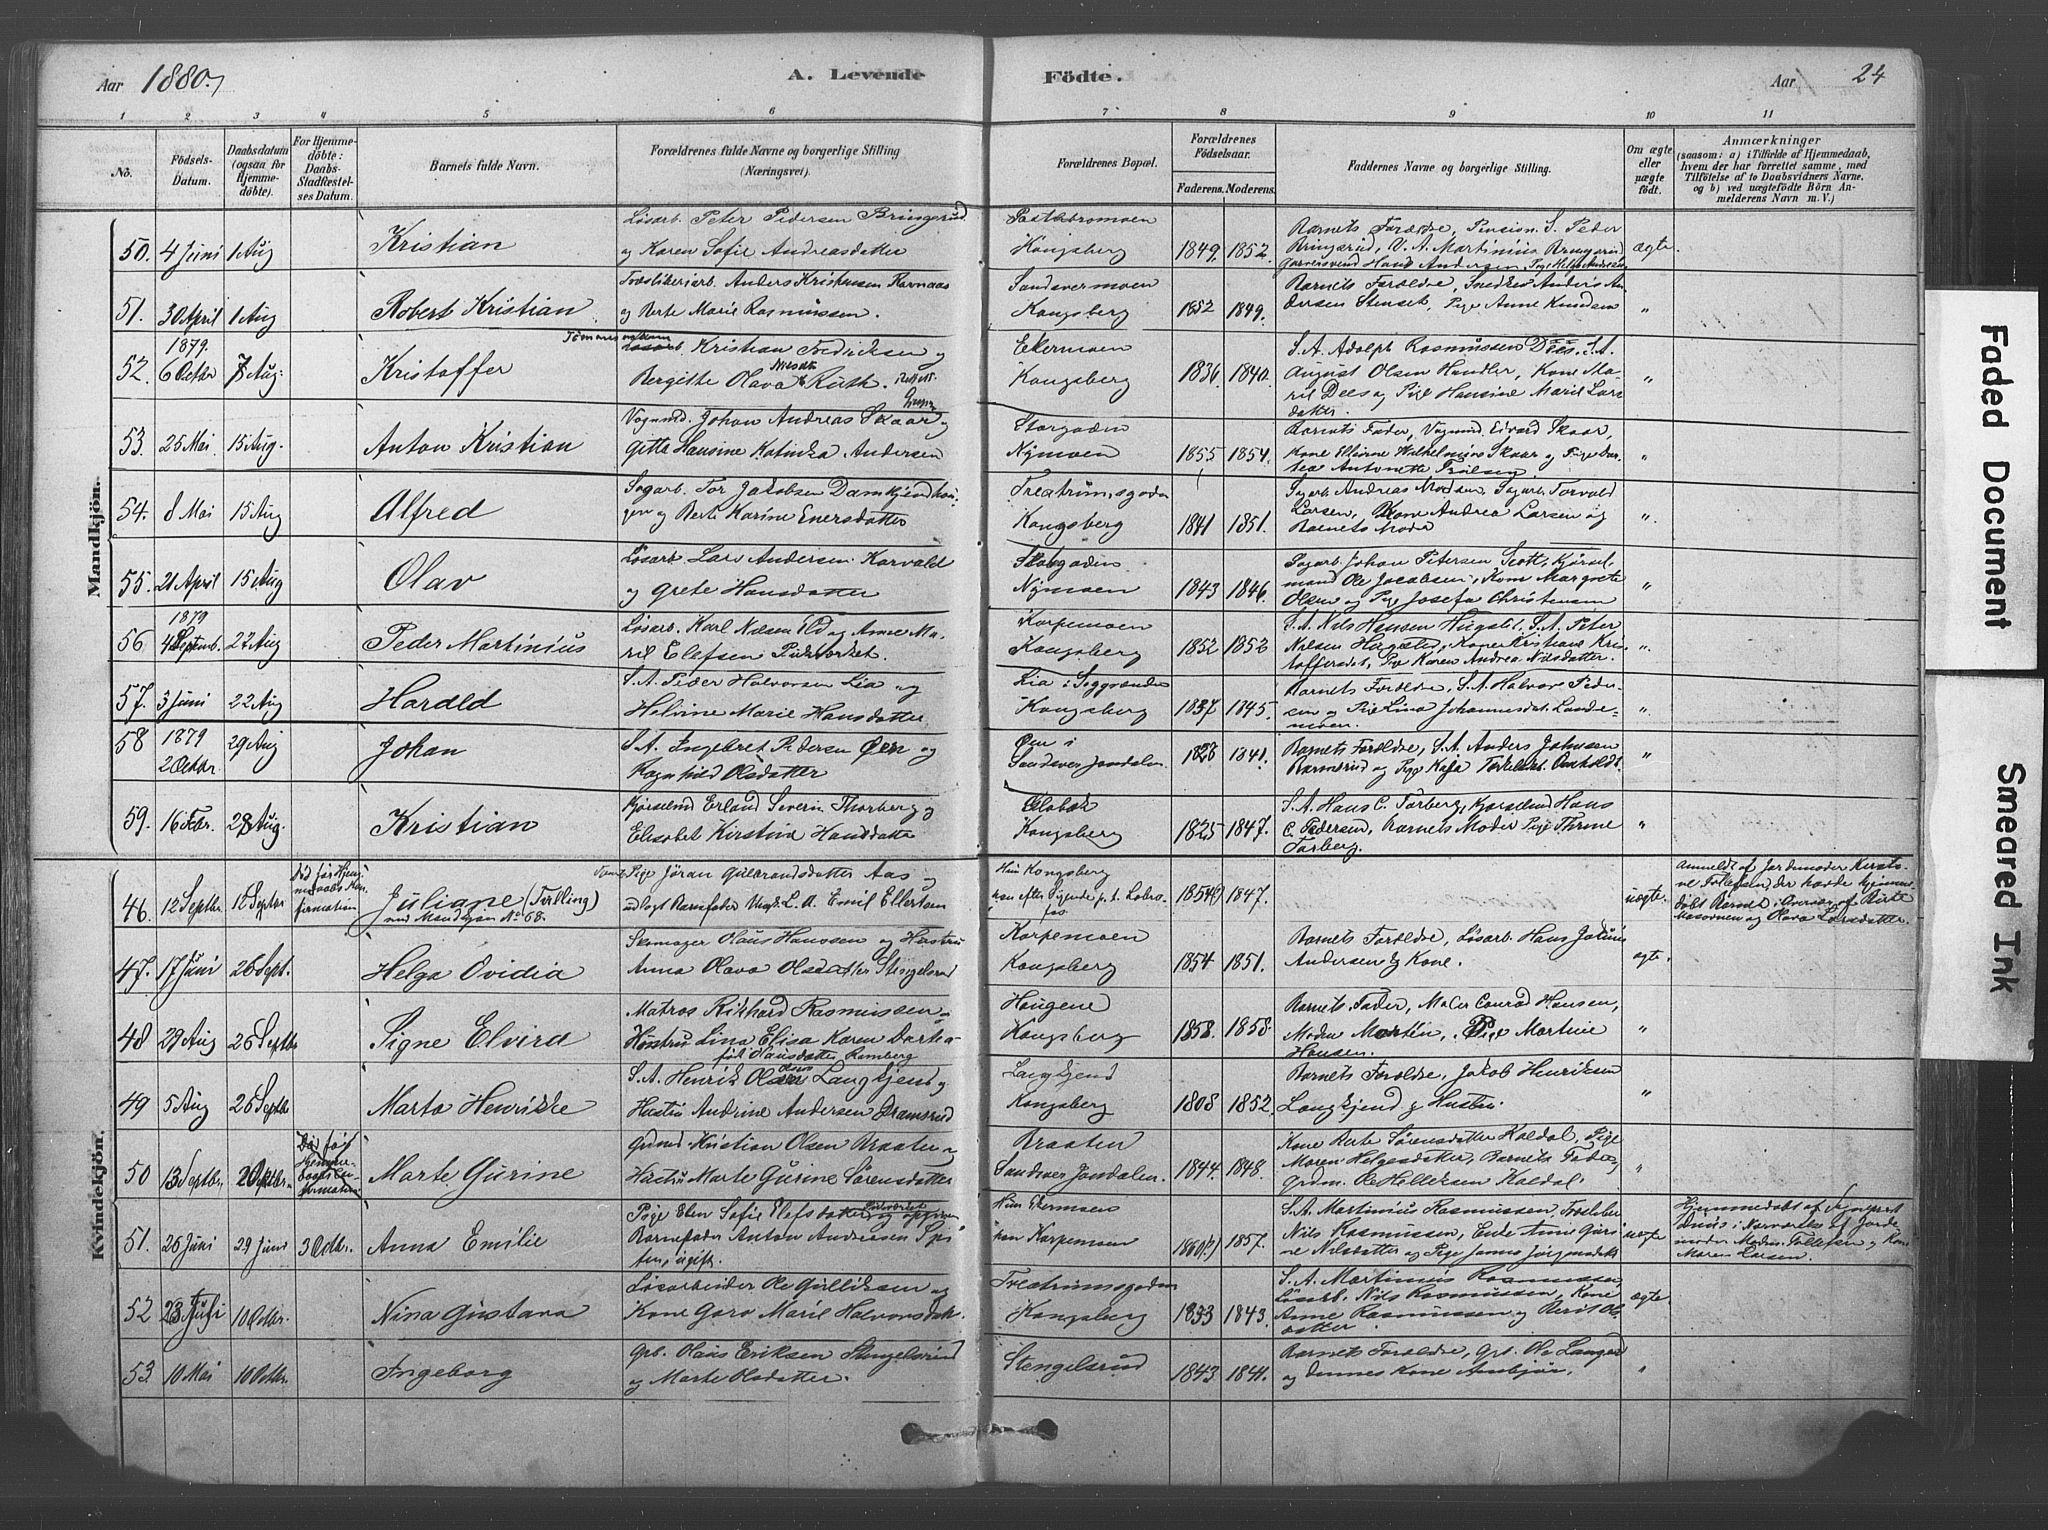 Aar 1880.
A. Levende Födte.
Aar 24
1 2 3 4 5 6 7 8 9 10 11
No.
Födsels-Datum.
Daabsdatum (ogsaa for Hjemme-døbte).
For Hjemme-døbte: Daabs-Stadfæstel-ses Datum.
Barnets fulde Navn.
Forældrenes fulde Navne og borgerlige Stilling (Næringsvei).
Forældrenes Bopæl.
Forældrenes Födselsaar.
Faderens. Moderens.
Faddernes Navne og borgerlige Stilling.
Om ægte eller uægte født.
Anmærkninger
(saasom: a) i Tilfælde af Hjemmedaab,
hvem der har forrettet samme, med
Tilföielse af to Daabsvidners Navne,
og b) ved uægtefödte Börn An-
melderens Navn m. V.)
Mandkjön.
50. 4 Juni 1 Aug Kristian
Løsarb. Peter Pedersen Bringerud
og Karen Sofie Andreasdatter
Kongsberg 1849. 1852.
Barnets Forældre, Pension. S. Peder
Bringerud, U. A. Martinius Bringerud
Garversvend Hans Andersen, Pige Helga
ægte.
51. 30 April 1 Aug Robert Kristian
Anders Kristensen Ravnaas
og Berte Marie Rasmussen.
Sandsvermoen
Kongsberg 1852 1849.
Barnets Forældre, Snedker Anders An-
dersen Stenset, Pige Anne Knudsen
"
52. 1879. 6 Octbr 7 Aug: Kristoffer
Kristian Fredriksen og
Bergitte Olava Nilsdt Ruth.
Ekermoen
Kongsberg 1836. 1840.
S. A. Adolph Rasmussen Dees. S. A.
August Olsen Handler, Kone Ma-
rie Dees og Pige Hansine Marie Lars-
datter.
"
53. 25 Mai 15 Aug. Anton Kristian
Vognmd. Johan Andreas Skaar og
Gitta Hansine Katinka Andersen
Storgaden
Nymoen 1855 1854.
Barnets Fader, Vognmd. Edvard Skaar,
Kone Elbine Wilhelmine Skaar og Pige Dor-
tea Antonette
"
54. 8 Mai 15 Aug Alfred
Sagarb. Tor Jakobsen Damkjendhau-
gen og Berte Karine Enersdatter
Kongsberg 1841 1851.
Sagarb. Andreas Madsen, Sagarb. Torvald
Larsen, Kone Andrea Larsen og
Barnets Moder
"
55. 21 April 15 Aug Olav
Løsarb. Lars Andersen Korvald
og Grete Hansdatter
Skolegaden
Nymoen 1843 1846.
Sagarb. Johan Petersen Scott, Kjørsel-
mand Ole Jacobsen, Kone Margrete
Olsen og Pige Josefa Christensen
"
56 1879 4 Septemb. 22 Aug Peder Martinius
Løsarb. Karl Nilsen og Anne Ma-
rie Elefsen
Korpemoen
Kongsberg 1852 1852
S. A. Nils Hansen Hugsted, S. A. Peter
Nilsen Hugsted, Kone Kristiane Kris-
toffersdt, Pige Karen Andrea Nilsdatter.
"
57. 3 Juni 22 Aug Harald
S. A. Peder Halvorsen Lia og
Helvine Marie Hansdatter
Lia i
Kongsberg 1837 1845.
Barnets Forældre, S. A. Halvor Peder-
sen og Pige Lina Johannesdt. Lunde-
moen.
"
58 1879 2 Octbr. 29 Aug Johan
S. A. Ingebret Pedersen Øen og
Ragnhild Olsdatter
Øen i
Sandsver Jondalen 1841.
Barnets Forældre, S. A. Anders Johnsen
og Pige Kaja
"
59. 16 Febr. 28 Aug. Kristian
Kjørselmd Erland Severin Thorberg og
Elisabet Kirstine Hansdatter
Kongsberg 1825 1847.
S. A. Hans C. Torberg, Kjørselmd Hans
C. Pedersen, Barnets Moder Pige Thrine
Torberg.
"
Kvindekjön.
46. 12 Septbr. 12 Septbr
Død før Hjem-
medaabs Kon-
firmation
Juliane (Tvilling)
med Mandkjøn No 68.
Pige Jøran Gulbrandsdatter Aas og
udlagt Barnefader Emil Ellertsen
Hun Kongsberg
1854(?) 1847.
uægte.
Anmeldt af Jordemoder Kirsti-
ne Tollefsen, der havde hjemme-
døbt Barnet i Overvær af Birte
og Olava Larsdatter.
47. 17 Juni 26 Sept. Helga Ovidia
Skomager Olaus Hanssen og Hustru
Anna Olava Olsdatter Stengelsrud
Korpemoen
Kongsberg 1854 1851.
Barnets Forældre, Løsarb. Hans
Andersen & Kone.
ægte.
48 29 Aug 26 Septbr Signe Elvira
Matros Rikhard Rasmussen og
Hustru Lina Elisa Karen Dortea
født Hansdatter Ramberg
Haugene
Kongsberg 1858. 1858.
Barnets Fader, Maler Conrad Hansen,
Moder Morten, Pige Martine
Hansen.
"
49 5 Aug 26 Septbr Marta Henrikke
S. A. Henrik Olsen Langkjend og
Hustru Andrine Andersen Dramsrud
Langkjend
Kongsberg 1852.
Barnets Forældre, Jakob Henriksen
Langkjend & Hustru.
"
50 13 Septbr. 2 Octbr.
Død før
Hjemme-
Marte Gurine
Grdmd. Kristian Olsen Braaten og
Hustru Marte Gurine Sørensdatter
Braaten
Sandsver Jondalen. 1844. 1848.
Kone Berte Sørensdatter Koldal, Pige
Maren Helgesdatter, Barnets Fader,
Grdm. Ole Hellersen Koldal.
"
51. 26 Juni 29 Juni 3 Octbr. Anna Emilie
Pige Elen Sofie Elefsdatter og opgiven
Barnefader Anton Andersen
ugift.
Hun Ekermoen
han Korpemoen 1860(?) 1857.
S. A. Martinius Rasmussen,
Nils Rasmussen, Enke Anne Guri-
ne Nilsdatter og Pige
uægte
Hjemmedøbt af
i Nærværelse af Jorde-
moder Madm. Tollefsen og Kone
Maren Larsen.
52 28 Juli 10 Octbr. Nina Gustava
Løsarbeider Ole Gulliksen og
Kone Guro Marie Halvorsdatt.
Kongsberg 1833 1843.
S. A. Martinius Rasmussen
Løsarb. Nils Rasmussen, Kone
Anne Rasmussen og Berit Ols-
datter.
ægte
53. 10 Mai 10 Octbr. Ingeborg
Grb. Olaus Eriksen Stengelsrud
og Marte Olsdatter.
Stengelsrud 1843 1841.
Barnets Forældre, Grb. Ole Langerud
og dennes Kone Anbjør.
"
Faded Document
Smeared Ink